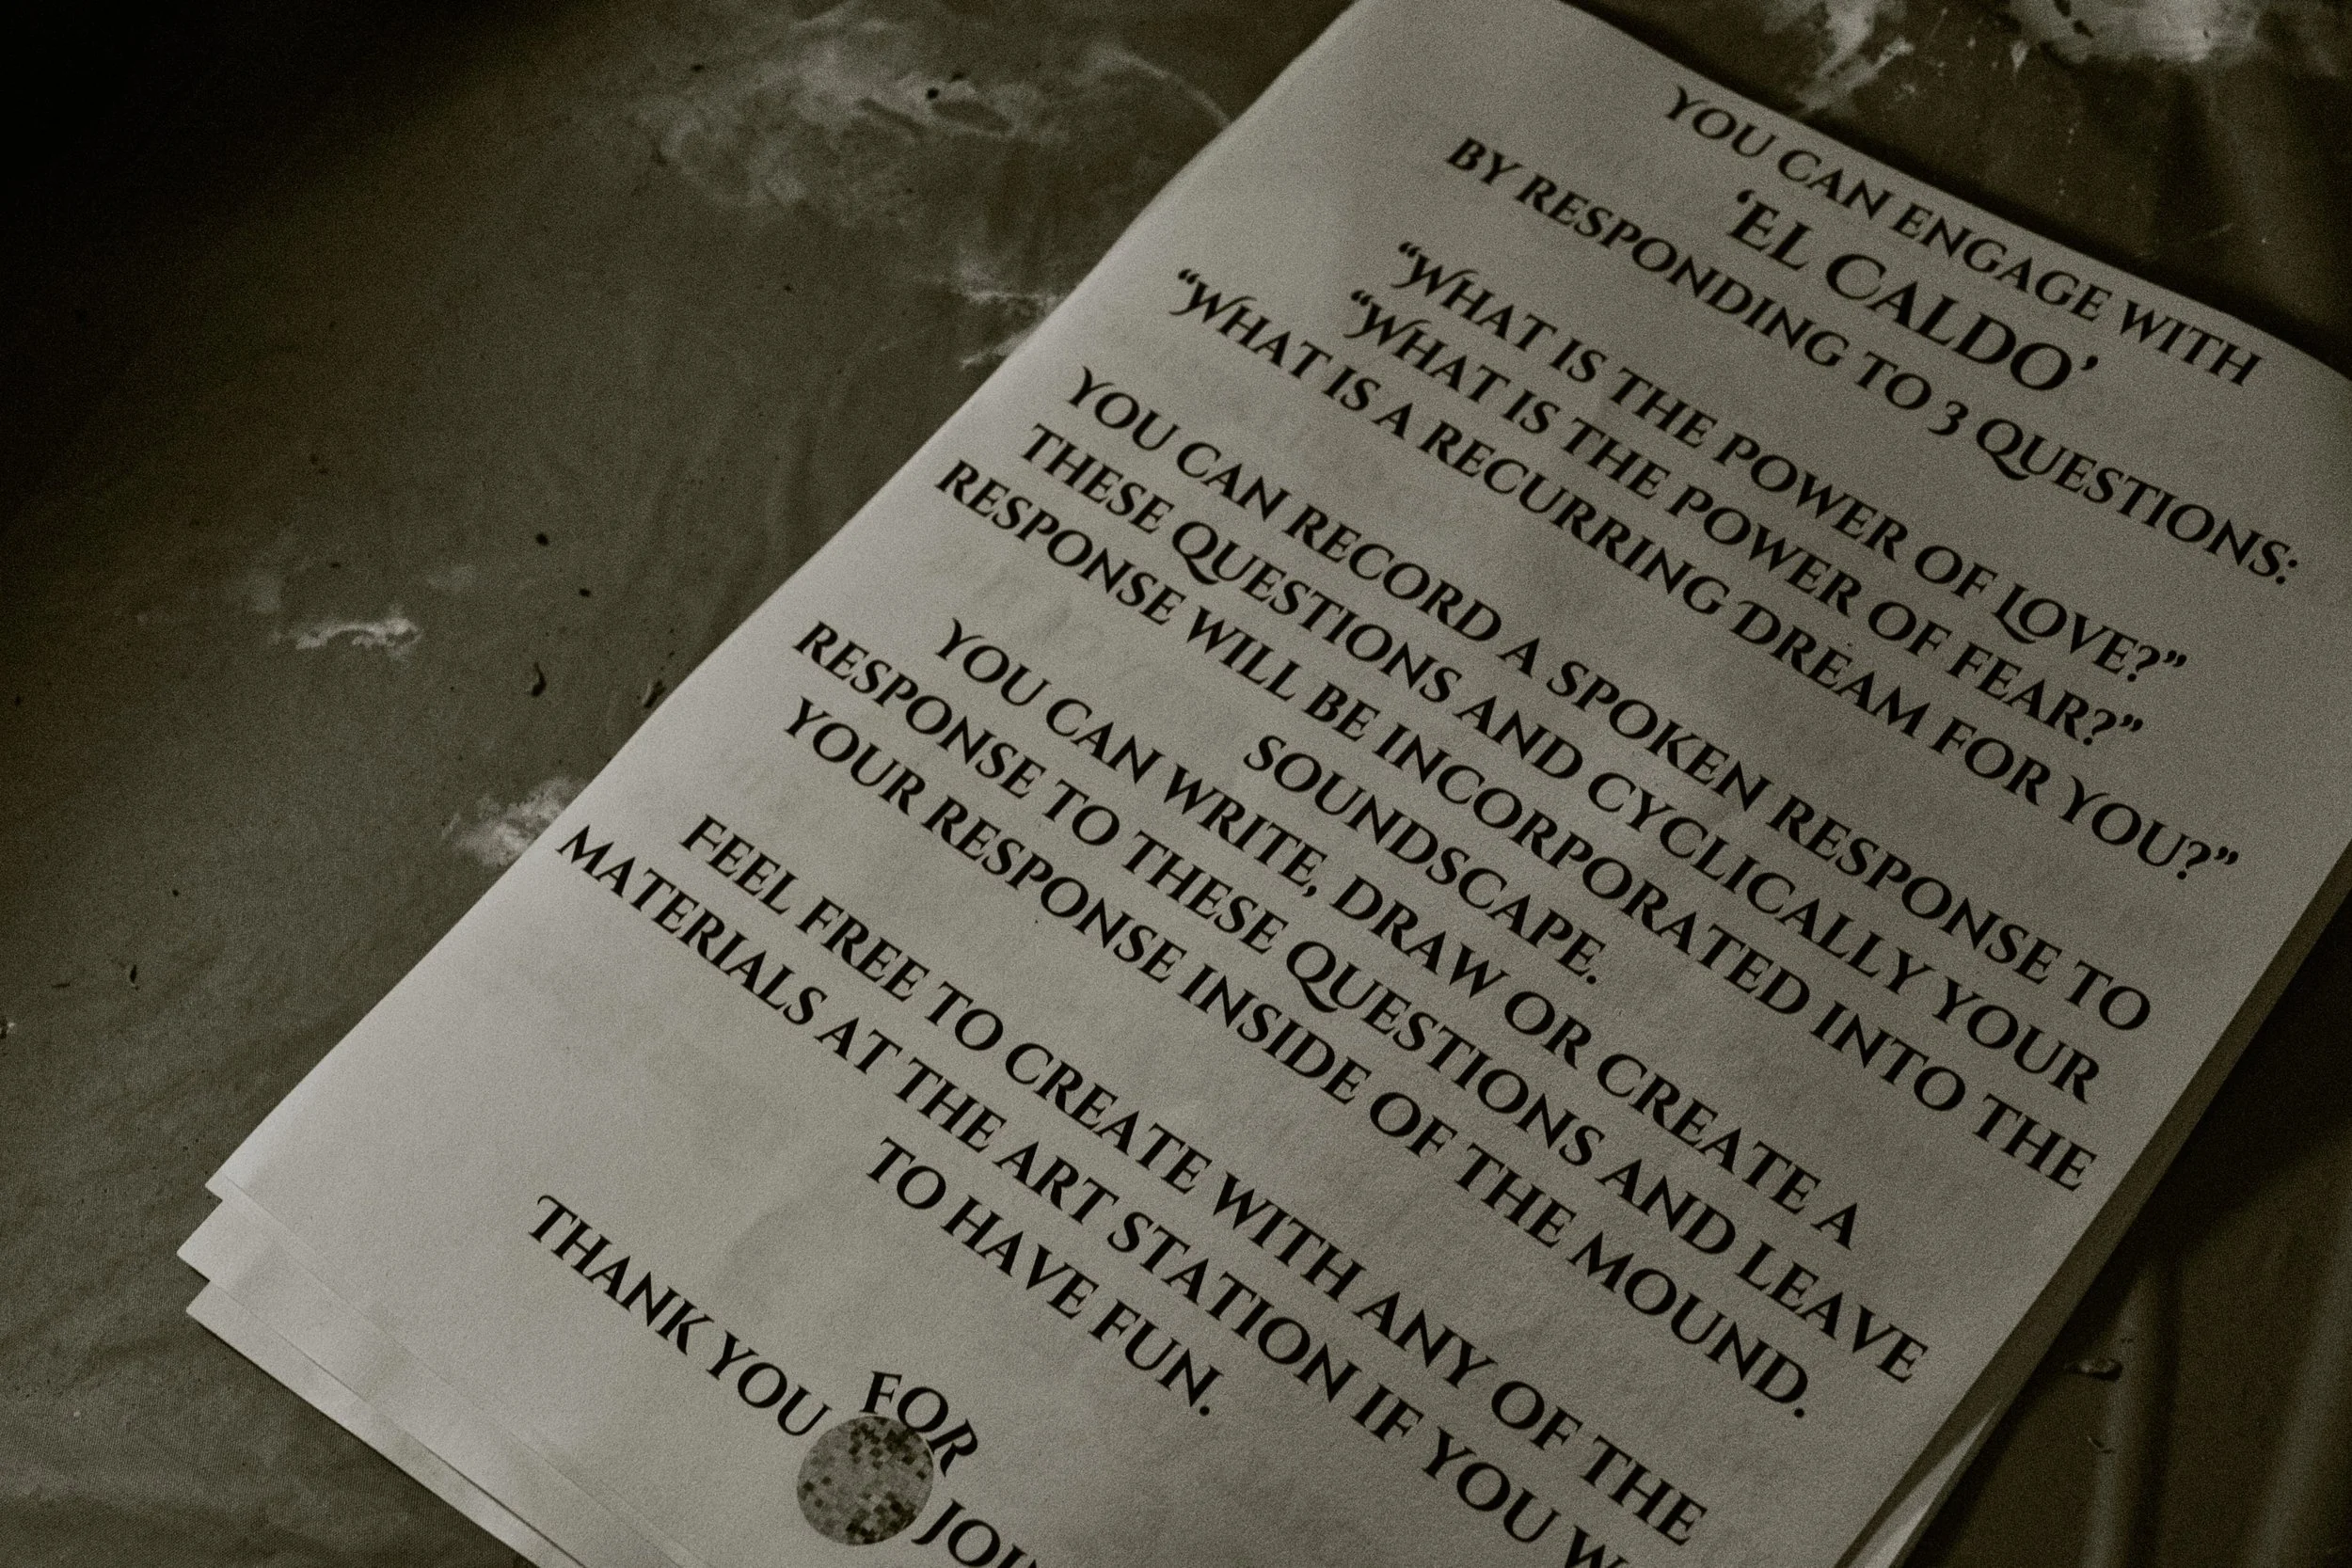 YOU CAN ENGAGE WITH
‘EL CALDO’
BY RESPONDING TO 3 QUESTIONS:
“WHAT IS THE POWER OF LOVE?”
“WHAT IS THE POWER OF FEAR?”
“WHAT IS A RECURRING DREAM FOR YOU?”
YOU CAN RECORD A SPOKEN RESPONSE TO
THESE QUESTIONS AND CYCLICALLY YOUR
RESPONSE WILL BE INCORPORATED INTO THE
SOUNDSCAPE.
YOU CAN WRITE, DRAW OR CREATE A
RESPONSE TO THESE QUESTIONS AND LEAVE
YOUR RESPONSE INSIDE OF THE MOUND.
FEEL FREE TO CREATE WITH ANY OF THE
MATERIALS AT THE ART STATION IF YOU
TO HAVE FUN.
THANK YOU
FOR